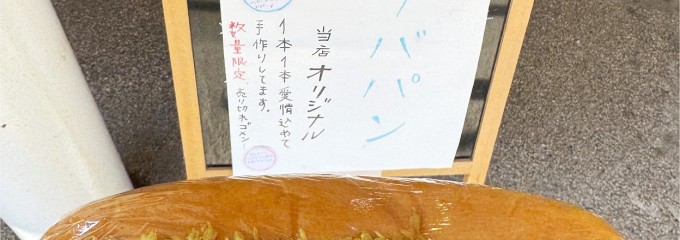 バパン
当店オリジナル
1本1本愛情込めて
手作りしてます。
数量限定、売り切れゴメン